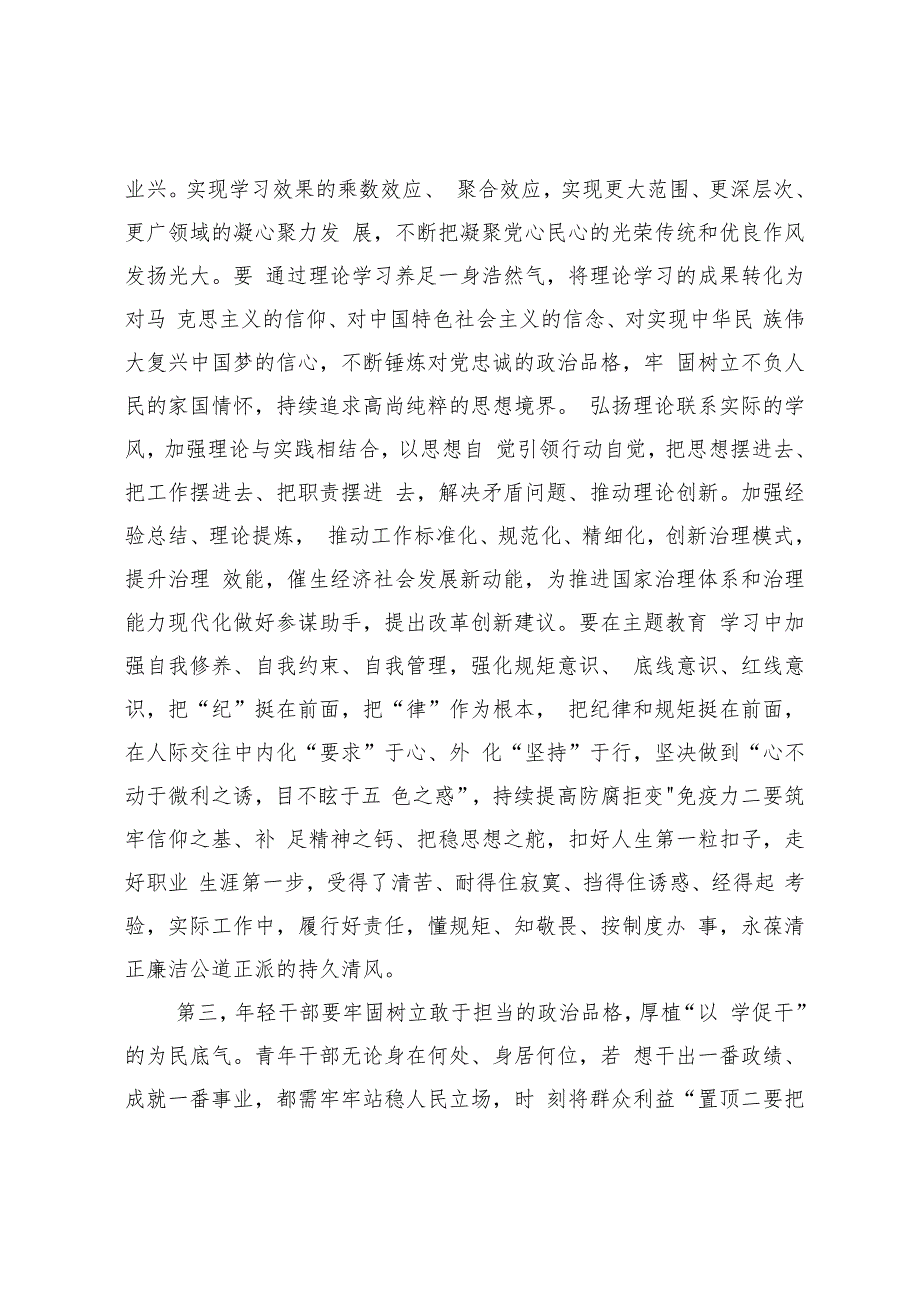 业兴。实现学习效果的乘数效应、 聚合效应，实现更大范围、更深层次、
更广领域的凝心聚力发 展，不断把凝聚党心民心的光荣传统和优良作风
发扬光大。要 通过理论学习养足一身浩然气，将理论学习的成果转化为
对马 克思主义的信仰、对中国特色社会主义的信念、对实现中华民 族伟
大复兴中国梦的信心，不断锤炼对党忠诚的政治品格，牢 固树立不负人
民的家国情怀，持续追求高尚纯粹的思想境界。 弘扬理论联系实际的学
风，加强理论与实践相结合，以思想自 觉引领行动自觉，把思想摆进去、
把工作摆进去、把职责摆进 去，解决矛盾问题、推动理论创新。加强经
验总结、理论提炼， 推动工作标准化、规范化、精细化，创新治理模式，
提升治理 效能，催生经济社会发展新动能，为推进国家治理体系和治理
能力现代化做好参谋助手，提出改革创新建议。要在主题教育 学习中加
强自我修养、自我约束、自我管理，强化规矩意识、 底线意识、红线意
识，把“纪”挺在前面，把“律”作为根本， 把纪律和规矩挺在前面，
在人际交往中内化“要求”于心、外 化“坚持”于行，坚决做到“心不
动于微利之诱，目不眩于五 色之惑”，持续提高防腐拒变"免疫力二要筑
牢信仰之基、补 足精神之钙、把稳思想之舵，扣好人生第一粒扣子，走
好职业 生涯第一步，受得了清苦、耐得住寂寞、挡得住诱惑、经得起 考
验，实际工作中，履行好责任，懂规矩、知敬畏、按制度办 事，永葆清
正廉洁公道正派的持久清风。
第三，年轻干部要牢固树立敢于担当的政治品格，厚植“以 学促干”
的为民底气。青年干部无论身在何处、身居何位，若 想干出一番政绩、
成就一番事业，都需牢牢站稳人民立场，时 刻将群众利益“置顶二要把